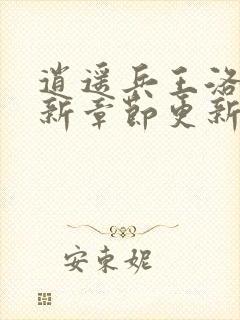 逍遥兵王洛
新章節更新
安東妮